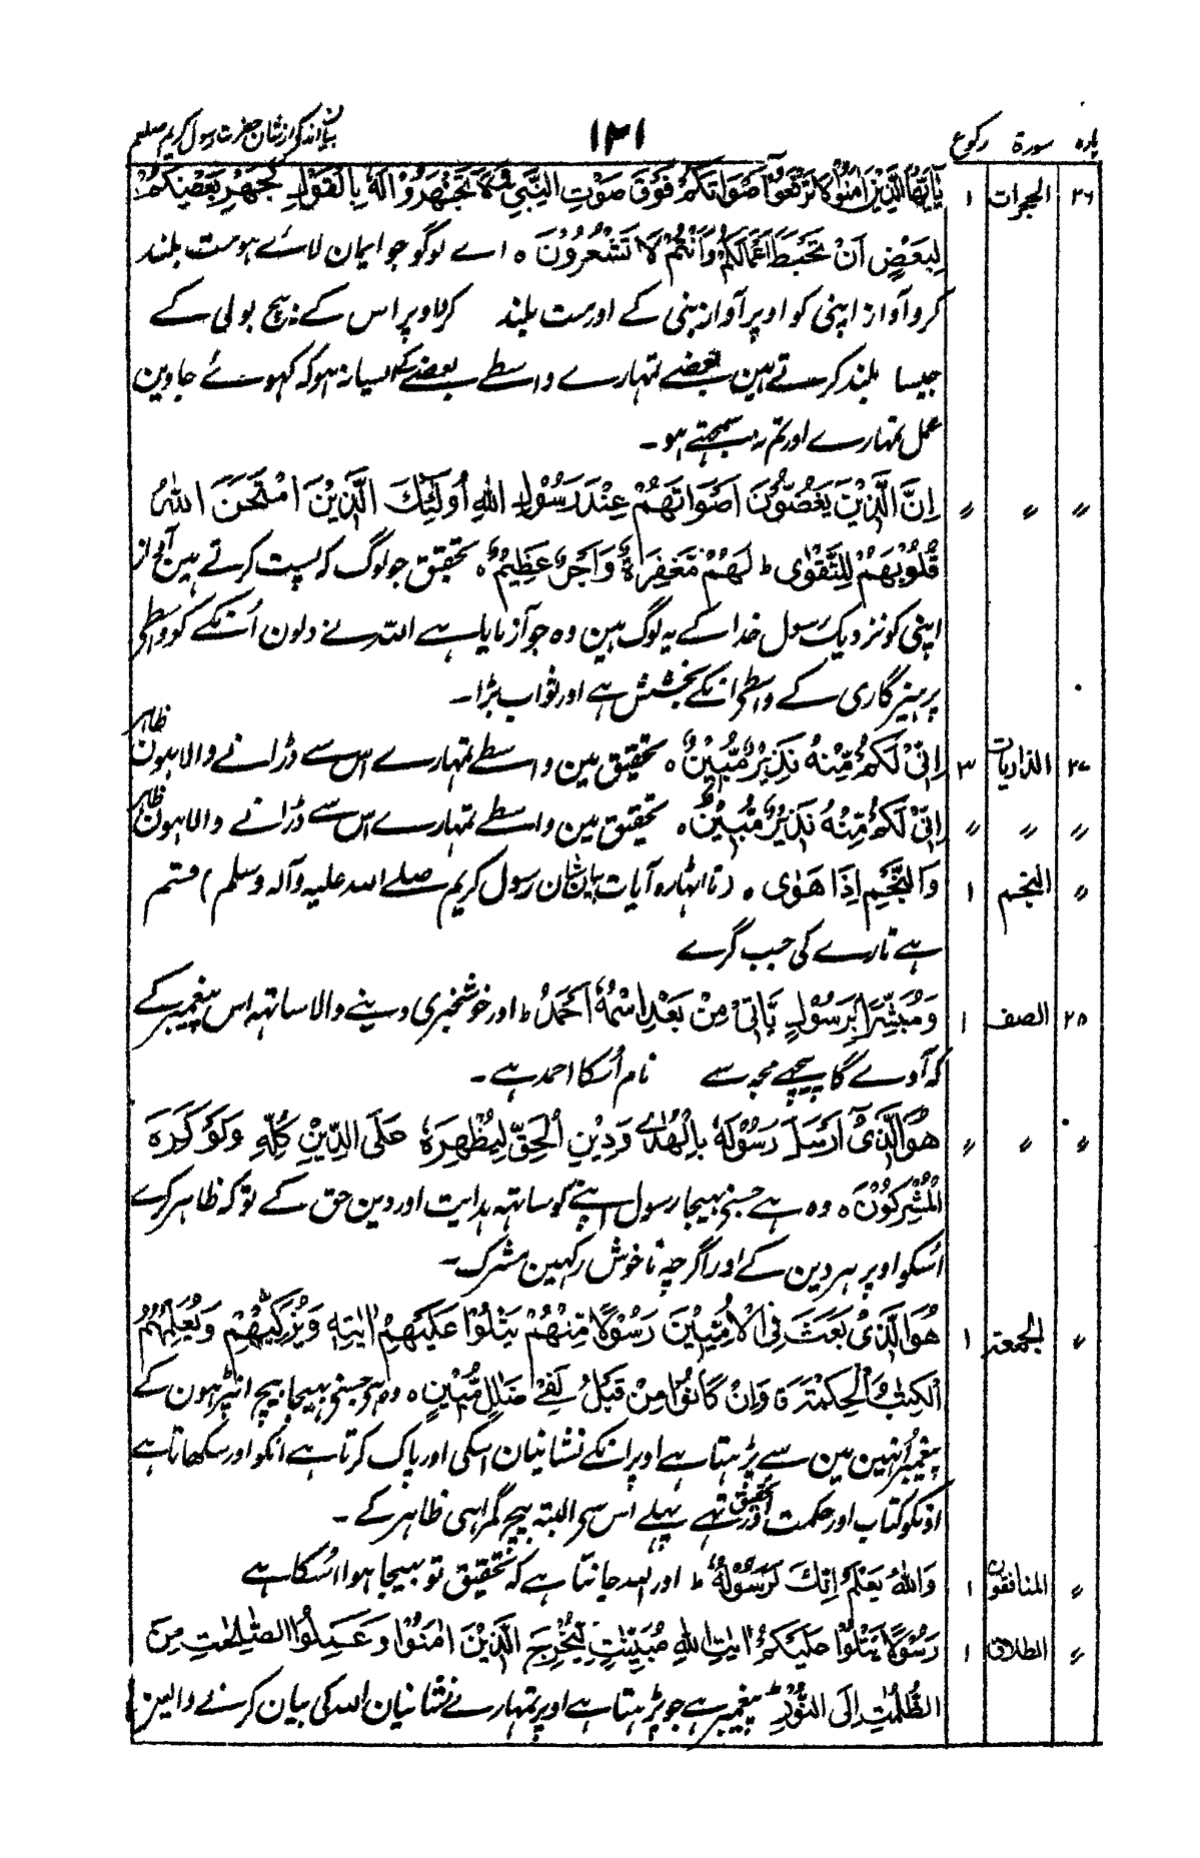 پارہ سورۃ رکوع ۱۳۱ بیان اندکی از شان حضرت رسول کریم صلعم
۲۶ الحجرات ۱ يٰٓاَيُّهَا الَّذِيْنَ اٰمَنُوْا لَا تَرْفَعُوْٓا اَصْوَاتَكُمْ فَوْقَ صَوْتِ النَّبِيِّ وَلَا تَجْهَرُوْا لَهٗ بِالْقَوْلِ كَجَهْرِ بَعْضِكُمْ
لِبَعْضٍ اَنْ تَحْبَطَ اَعْمَالُكُمْ وَاَنْتُمْ لَا تَشْعُرُوْنَ ہ اے لوگو جو ایمان لائے ہو مت بلند
کرو آواز اپنی کو اوپر آواز نبی کے اور مت بلند کرو اوپر اس کے بیچ بولی کے
جیسا بلند کرتے ہین بعضے تمہارے واسطے بعضے کے ایسا نہ ہو کہ کہوئے جاوین
عمل تمہارے اور تم نہ سمجہتے ہو۔
〃 〃 〃 اِنَّ الَّذِيْنَ يَغُضُّوْنَ اَصْوَاتَهُمْ عِنْدَ رَسُوْلِ اللهِ اُولٰٓئِكَ الَّذِيْنَ امْتَحَنَ اللهُ
قُلُوْبَهُمْ لِلتَّقْوٰى ط لَهُمْ مَّغْفِرَةٌ وَّاَجْرٌ عَظِيْمٌ ہ تحقیق جو لوگ کہ پست کرتے ہین آواز
اپنی کو نزدیک رسول خدا کے یہ لوگ ہین وہ جو آزمایا ہے اللہ نے دلون اُنکے کو واسطے
پرہیزگاری کے واسطے انکے بخشش ہے اور ثواب بڑا۔
۲۷ الذاریات ۳ اِنِّيْ لَكُمْ مِّنْهُ نَذِيْرٌ مُّبِيْنٌ ہ تحقیق مین واسطے تمہارے اس سے ڈرانے والا ہون ظاہر
〃 〃 〃 اِنِّيْ لَكُمْ مِّنْهُ نَذِيْرٌ مُّبِيْنٌ ہ تحقیق مین واسطے تمہارے اس سے ڈرانے والا ہون ظاہر
〃 النجم ۱ وَالنَّجْمِ اِذَا هَوٰى ہ (تا اٹہارہ آیات بیان شان رسول کریم صلے اللہ علیہ وآلہ وسلم) قسم
ہے تارے کی جب گرے
۲۸ الصف ۱ وَمُبَشِّرًۢا بِرَسُوْلٍ يَّاْتِيْ مِنْۢ بَعْدِي اسْمُهٗٓ اَحْمَدُ ط اور خوشخبری دینے والا ساتہہ اس پیغمبر کے
کہ آوے گا پیچہے مجہ سے نام اُسکا احمد ہے۔
〃 〃 〃 هُوَ الَّذِيْٓ اَرْسَلَ رَسُوْلَهٗ بِالْهُدٰى وَدِيْنِ الْحَقِّ لِيُظْهِرَهٗ عَلَى الدِّيْنِ كُلِّهٖ وَلَوْ كَرِهَ
الْمُشْرِكُوْنَ ہ وہ ہے جسنے بہیجا رسول اپنے کو ساتہہ ہدایت اور دین حق کے تو کہ ظاہر کرے
اُسکو اوپر ہر دین کے اور اگرچہ ناخوش رکہین مشرک۔
〃 الجمعۃ ۱ هُوَ الَّذِيْ بَعَثَ فِي الْاُمِّيّٖنَ رَسُوْلًا مِّنْهُمْ يَتْلُوْا عَلَيْهِمْ اٰيٰتِهٖ وَيُزَكِّيْهِمْ وَيُعَلِّمُهُمُ
الْكِتٰبَ وَالْحِكْمَةَ ق وَاِنْ كَانُوْا مِنْ قَبْلُ لَفِيْ ضَلٰلٍ مُّبِيْنٍ ہ وہ ہے جسنے بہیجا بیچ انپڑہون کے
پیغمبر اُنہین مین سے پڑہتا ہے اوپر انکے نشانیان اسکی اور پاک کرتا ہے انکو اور سکھاتا ہے
انکو کتاب اور حکمت اور تحقیق تہے پہلے اس سے البتہ بیچ گمراہی ظاہر کے۔
〃 المنافقون ۱ وَاللهُ يَعْلَمُ اِنَّكَ لَرَسُوْلُهٗ ط اور اللہ جانتا ہے کہ تحقیق تو بہیجا ہوا اُسکا ہے
〃 الطلاق ۱ رَسُوْلًا يَّتْلُوْا عَلَيْكُمْ اٰيٰتِ اللهِ مُبَيِّنٰتٍ لِّيُخْرِجَ الَّذِيْنَ اٰمَنُوْا وَعَمِلُوا الصّٰلِحٰتِ مِنَ
الظُّلُمٰتِ اِلَى النُّوْرِ ط پیغمبر ہے جو پڑہتا ہے اوپر تمہارے نشانیان اللہ کی بیان کرنے والین